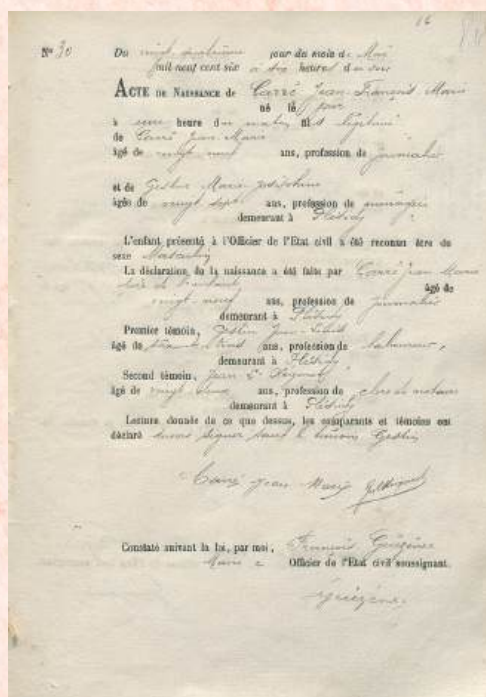 16
N° 30 Du vingt quatrième jour du mois de Mai
mil neuf cent six à six heures du soir
ACTE DE NAISSANCE de Carré Jean François Marie
né le jour
à une heure du matin fils légitime
de Carré Jean Marie
âgé de vingt neuf ans, profession de journalier
et de Gestin Marie Joséphine
âgée de vingt sept ans, profession de ménagère
demeurant à Plésidy
L'enfant présenté à l'Officier de l'Etat civil a été reconnu être du
sexe Masculin
La déclaration de la naissance a été faite par Carré Jean Marie
père de l'enfant âgé de
vingt-neuf ans, profession de journalier
demeurant à Plésidy
Premier témoin, Gestin Jean Louis
âgé de ans, profession de laboureur,
demeurant à Plésidy
Second témoin, Jean
âgé de vingt ans, profession de clerc de notaire
demeurant à Plésidy
Lecture donnée de ce que dessus, les comparants et témoins ont
déclaré savoir signer sauf le témoin Gestin
Carré Jean Marie
Constaté suivant la loi, par moi, François
Maire Officier de l'Etat civil soussignant.